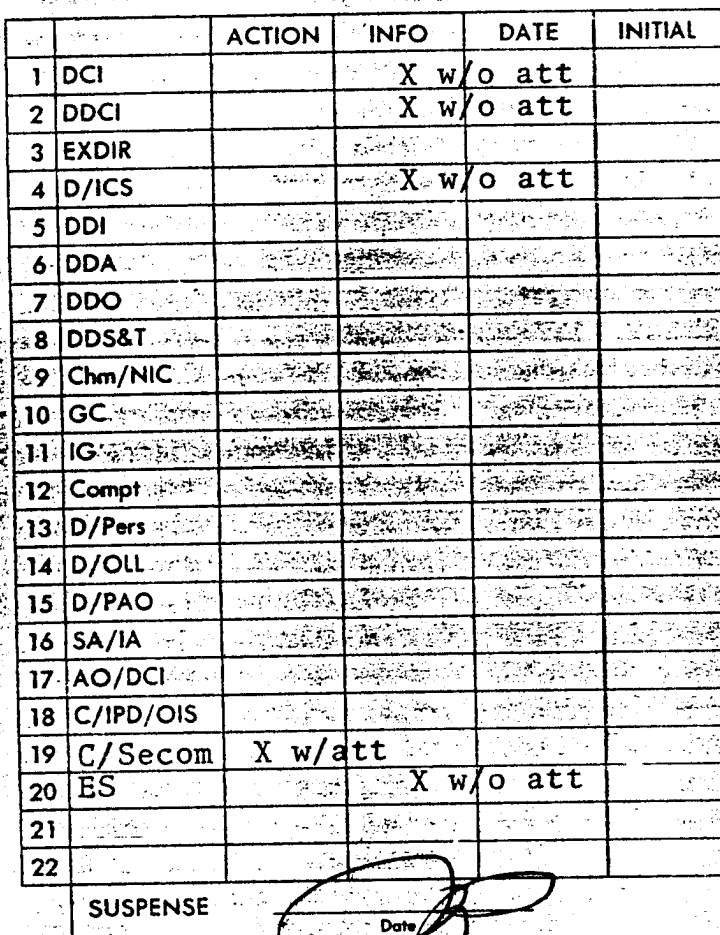 ACTION INFO DATE INITIAL
1 DCI X w/o att
2 DDCI X w/o att
3 EXDIR
4 D/ICS X w/o att
5 DDI
6 DDA
7 DDO
8 DDS&T
9 Chm/NIC
10 GC
11 IG
12 Compt
13 D/Pers
14 D/OLL
15 D/PAO
16 SA/IA
17 AO/DCI
18 C/IPD/OIS
19 C/Secom X w/att
20 ES X w/o att
21
22
SUSPENSE
Date